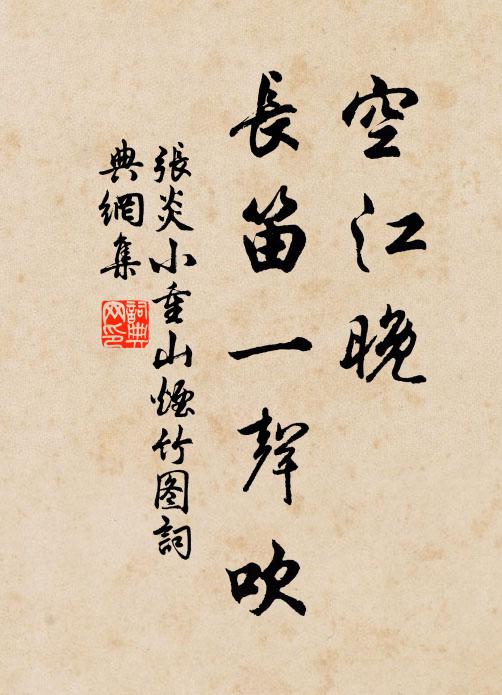 空江晚
長笛一聲吹
張炎小重山煙竹图詞
典網集
詞典
网印